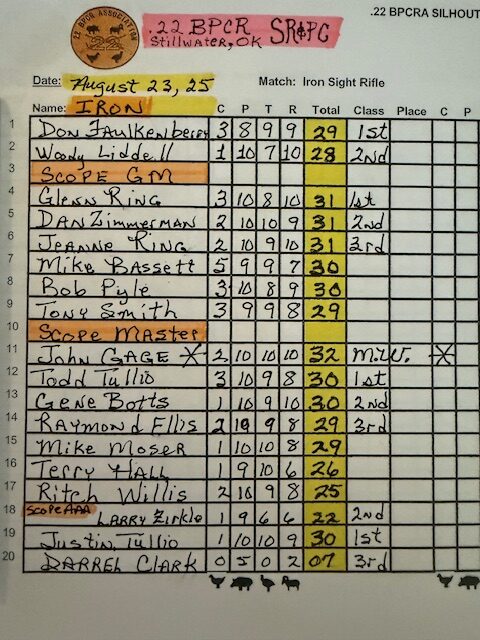 .22 BPCR ASSOCIATION
22
.22 BPCR SR&PC
Stillwater, OK
.22 BPCRA SILHOUT
Date: August 23, 25 Match: Iron Sight Rifle
Name: IRON C P T R Total Class Place C P
1 Don Faulkenberry 3 8 9 9 29 1st
2 Woody Liddell 1 10 7 10 28 2nd
3 Scope GM
4 Glenn Ring 3 10 8 10 31 1st
5 Dan Zimmerman 2 10 10 9 31 2nd
6 Jeanne Ring 2 10 9 10 31 3rd
7 Mike Bassett 5 9 9 7 30
8 Bob Pyle 3 10 8 9 30
9 Tony Smith 3 9 9 8 29
10 Scope Master
11 John Gage * 2 10 10 10 32 M.W. *
12 Todd Tullio 3 10 9 8 30 1st
13 Gene Botts 1 10 9 10 30 2nd
14 Raymond Ellis 2 10 9 8 29 3rd
15 Mike Moser 1 10 10 8 29
16 Terry Hall 1 9 10 6 26
17 Ritch Willis 2 9 8 25
18 Scope AAA Larry Zirkle 1 9 6 6 22 2nd
19 Justin Tullio 1 10 10 9 30 1st
20 Darrel Clark 0 5 0 2 07 3rd